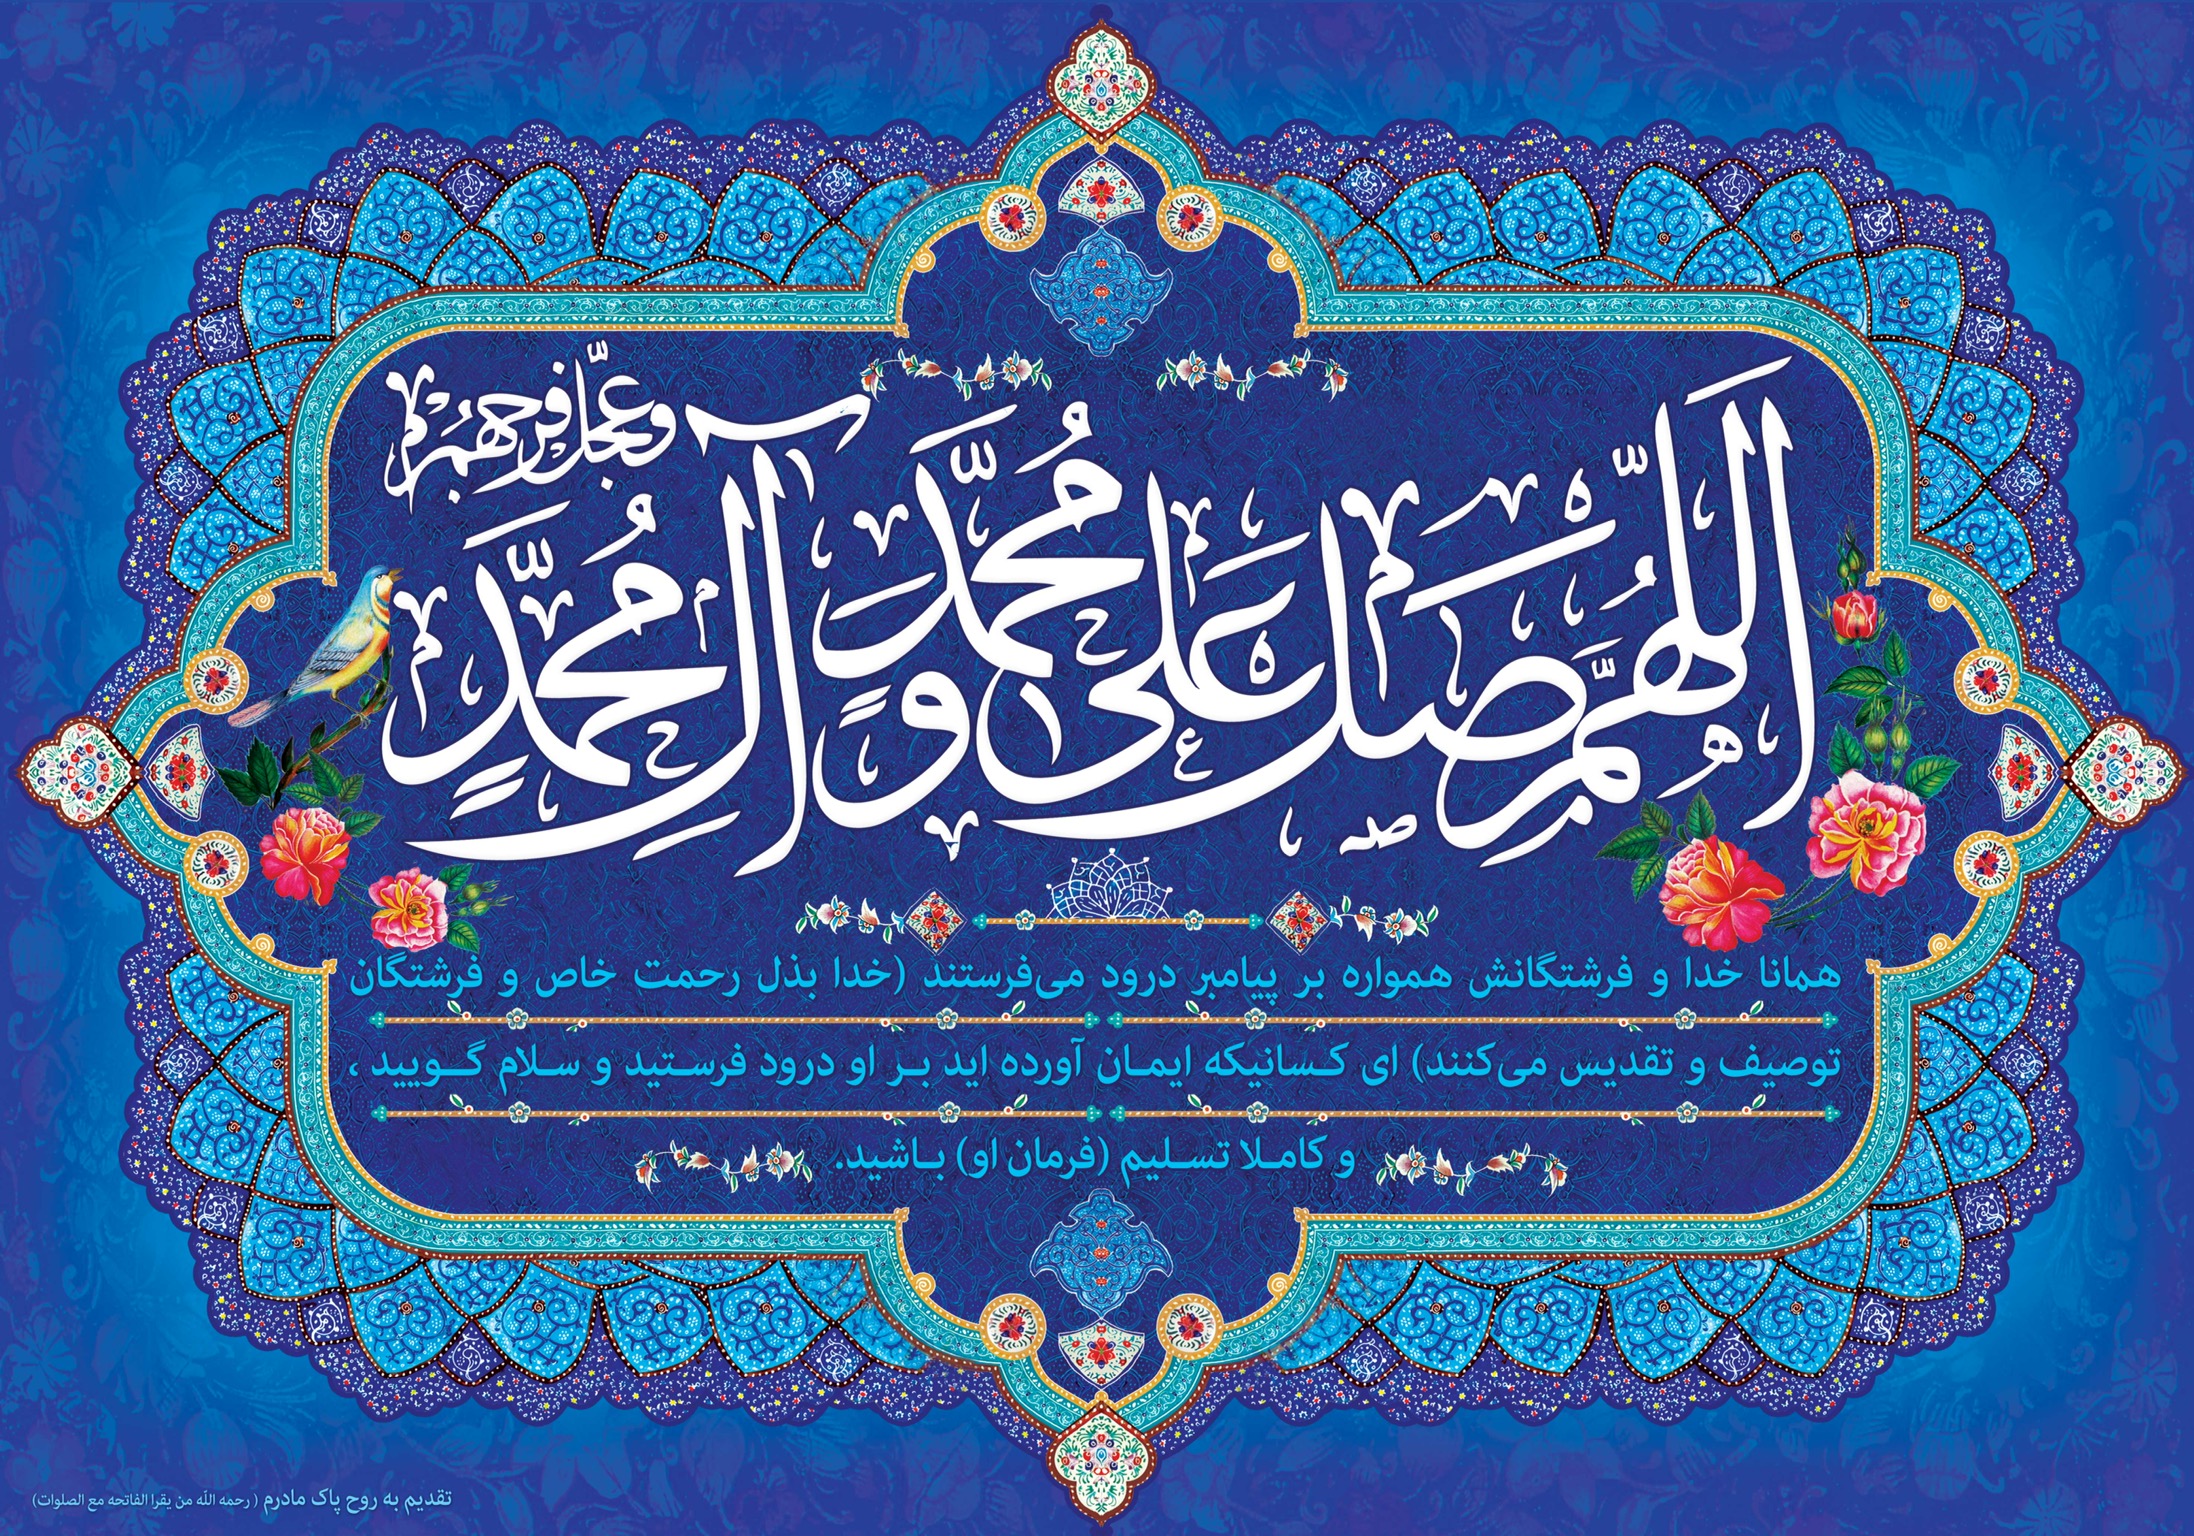 اللهم صل علی محمد و آل محمد
وعجل فرجهم
همانا خدا و فرشتگانش همواره بر پیامبر درود می‌فرستند (خدا بذل رحمت خاص و فرشتگان
توصیف و تقدیس می‌کنند) ای کسانیکه ایمان آورده اید بر او درود فرستید و سلام گویید ،
و کاملا تسلیم (فرمان او) باشید.
تقدیم به روح پاک مادرم (رحمه الله من یقرا الفاتحه مع الصلوات)